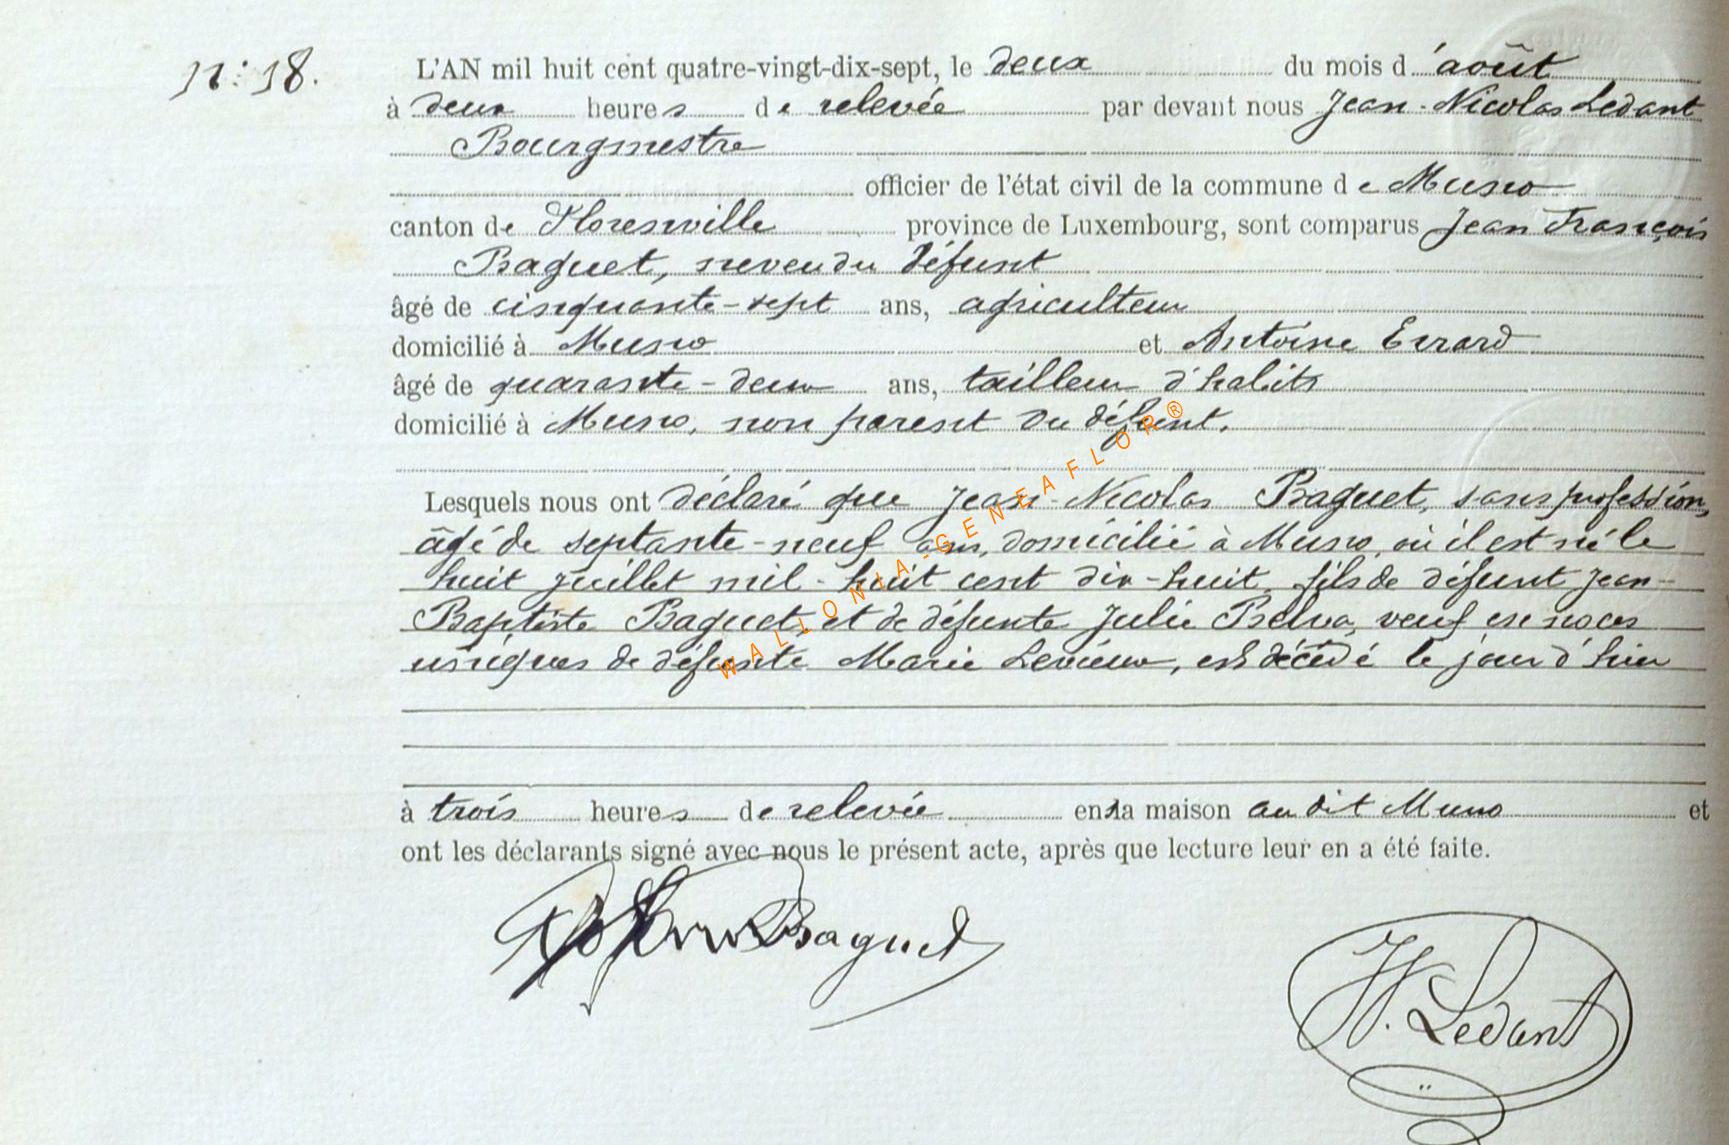 N° 18.
L'AN mil huit cent quatre-vingt-dix-sept, le deux du mois d'août
à deux heures de relevée par devant nous Jean-Nicolas Ledant
Bourgmestre
officier de l'état civil de la commune de Muno
canton de Florenville province de Luxembourg, sont comparus Jean François
Baguet, neveu du défunt
âgé de cinquante-sept ans, agriculteur
domicilié à Muno et Antoine Evrard
âgé de quarante-deux ans, tailleur d'habits
domicilié à Muno, non parent du défunt.
Lesquels nous ont déclaré que Jean-Nicolas Baguet, sans profession,
âgé de septante-neuf ans, domicilié à Muno, où il est né le
huit juillet mil-huit cent dix-huit, fils de défunt Jean-
Baptiste Baguet, et de défunte Julie Belva, veuf en noces
uniques de défunte Marie Levieux, est décédé le jour d'hier
à trois heures de relevée en la maison au dit Muno et
ont les déclarants signé avec nous le présent acte, après que lecture leur en a été faite.
Baguet
N. Ledant
WALLONIA-GENEAFLOR®